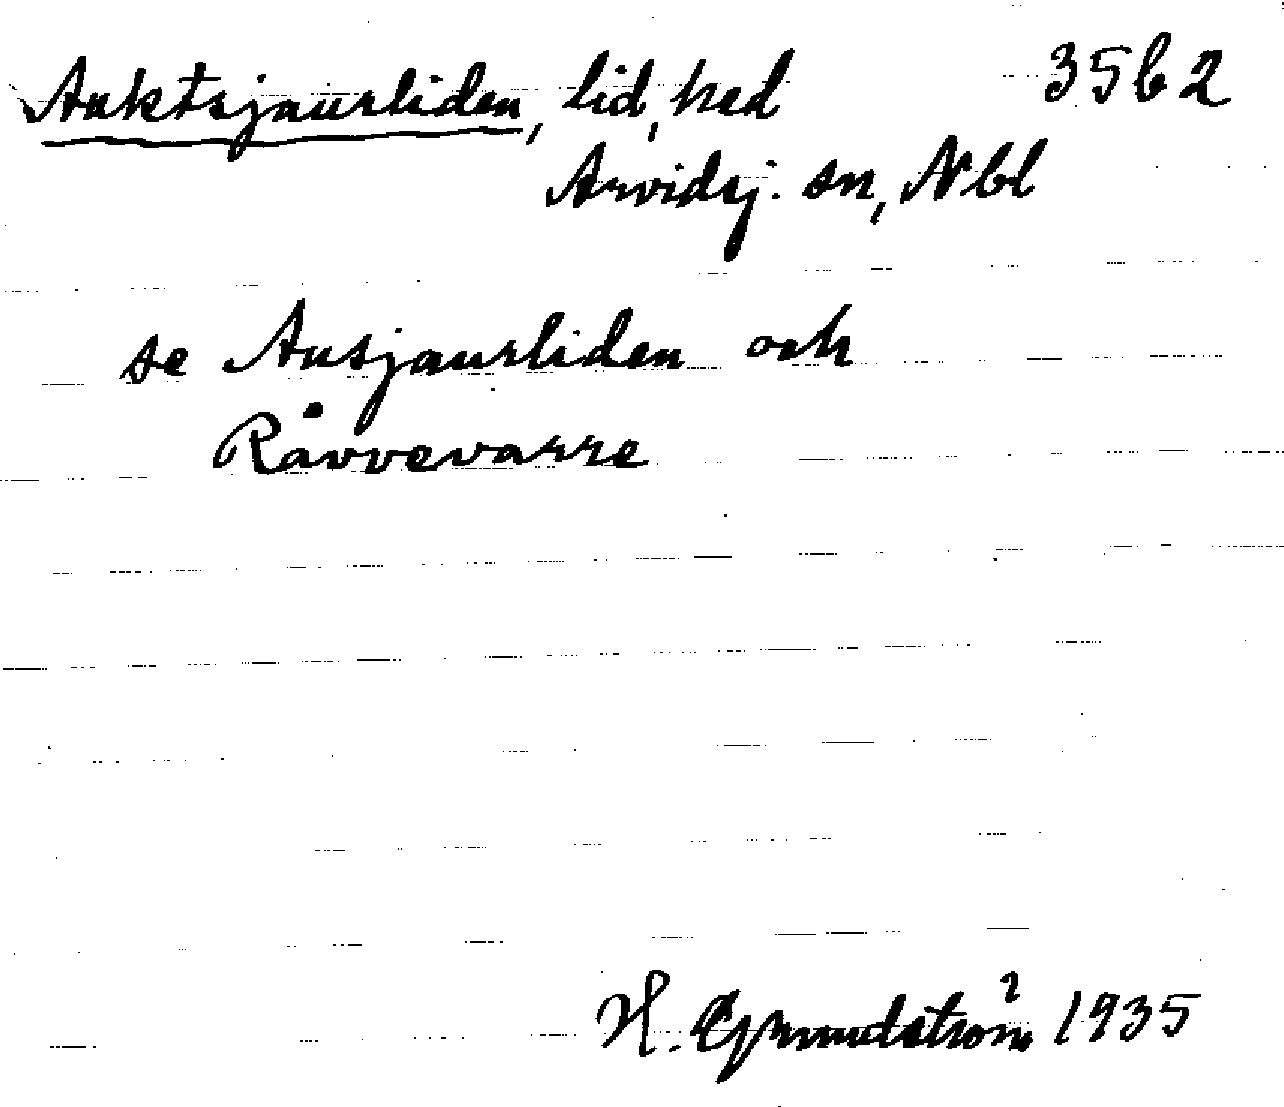 Auktsjaurliden, lid, hed 35b2
Arvidsj. sn, Nbl
se Ausjaurliden och
Råvvevarre
H. Grundström 1935